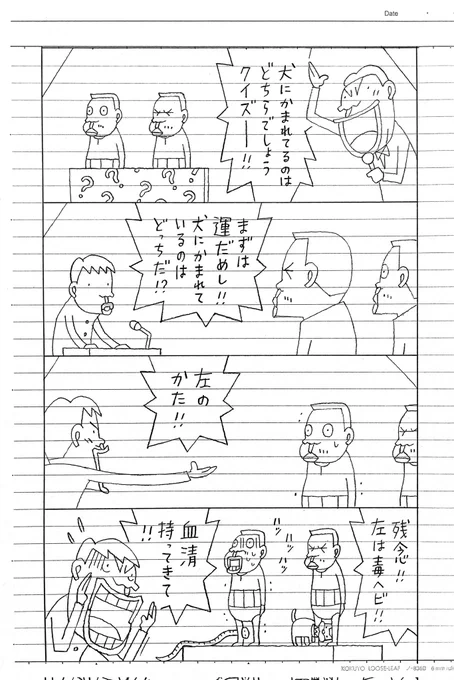 Date
犬にかまれてるのは
どちらでしょう
クイズー!!
まずは
運だめし!!
犬にかまれて
いるのは
どっちだ!?
左の
かた!!
残念!!
左は毒ヘビ!!
ハッ
ハッ
ハッ
血清
持ってきて
!!
KOKUYO LOOSE-LEAF